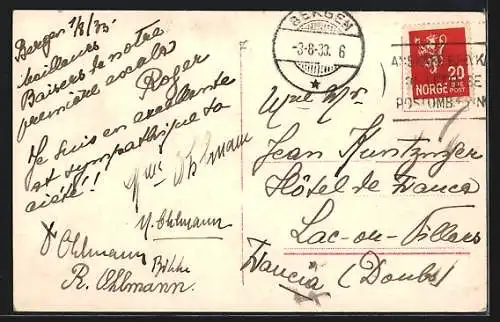 Bergen 1/8/33
Meilleurs
Baisers de notre
première escale
Roger
Je suis en excellente
et sympathique so
ciété!!
Mme Ohlmann
M. Ohlmann
Ohlmann
R. Ohlmann.
BERGEN
-3-8-33. 6
20
NORGE
POST
Mme Mr
Jean Kuntzinger
Hôtel de France
Lac-ou-Villers
Francia (Doubs)